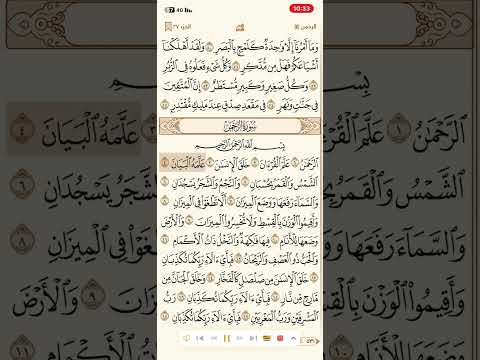 10:33
4G
الجزء ٢٧
الرحمن
وَمَآ أَمْرُنَآ إِلَّا وَٰحِدَةٌ كَلَمْحٍۭ بِٱلْبَصَرِ ٥٠ وَلَقَدْ أَهْلَكْنَآ
أَشْيَاعَكُمْ فَهَلْ مِن مُّدَّكِرٍ ٥١ وَكُلُّ شَىْءٍ فَعَلُوهُ فِى ٱلزُّبُرِ
٥٢ وَكُلُّ صَغِيرٍ وَكَبِيرٍ مُّسْتَطَرٌ ٥٣ إِنَّ ٱلْمُتَّقِينَ
فِى جَنَّٰتٍ وَنَهَرٍ ٥٤ فِى مَقْعَدِ صِدْقٍ عِندَ مَلِيكٍ مُّقْتَدِرٍۭ ٥٥
سُورَةُ الرَّحْمَٰن
بِسْمِ ٱللَّهِ ٱلرَّحْمَٰنِ ٱلرَّحِيمِ
ٱلرَّحْمَٰنُ ١ عَلَّمَ ٱلْقُرْءَانَ ٢ خَلَقَ ٱلْإِنسَٰنَ ٣ عَلَّمَهُ ٱلْبَيَانَ ٤
ٱلشَّمْسُ وَٱلْقَمَرُ بِحُسْبَانٍ ٥ وَٱلنَّجْمُ وَٱلشَّجَرُ يَسْجُدَانِ ٦
وَٱلسَّمَآءَ رَفَعَهَا وَوَضَعَ ٱلْمِيزَانَ ٧ أَلَّا تَطْغَوْا۟ فِى ٱلْمِيزَانِ ٨
وَأَقِيمُوا۟ ٱلْوَزْنَ بِٱلْقِسْطِ وَلَا تُخْسِرُوا۟ ٱلْمِيزَانَ ٩ وَٱلْأَرْضَ
وَضَعَهَا لِلْأَنَامِ ١٠ فِيهَا فَٰكِهَةٌ وَٱلنَّخْلُ ذَاتُ ٱلْأَكْمَامِ ١١
وَٱلْحَبُّ ذُو ٱلْعَصْفِ وَٱلرَّيْحَانُ ١٢ فَبِأَىِّ ءَالَآءِ رَبِّكُمَا تُكَذِّبَانِ
١٣ خَلَقَ ٱلْإِنسَٰنَ مِن صَلْصَٰلٍ كَٱلْفَخَّارِ ١٤ وَخَلَقَ ٱلْجَآنَّ مِن
مَّارِجٍ مِّن نَّارٍ ١٥ فَبِأَىِّ ءَالَآءِ رَبِّكُمَا تُكَذِّبَانِ ١٦ رَبُّ
ٱلْمَشْرِقَيْنِ وَرَبُّ ٱلْمَغْرِبَيْنِ ١٧ فَبِأَىِّ ءَالَآءِ رَبِّكُمَا تُكَذِّبَانِ ١٨
٥٣١